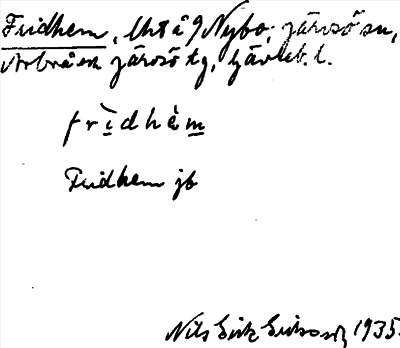 Fridhem, Utå 9 Nybo, Järvsö sn,
Arbrå och Järvsö tg, Gävleb. l.
frìdhèm
Fridhem jb
Nils Erik Eriksson 1935.